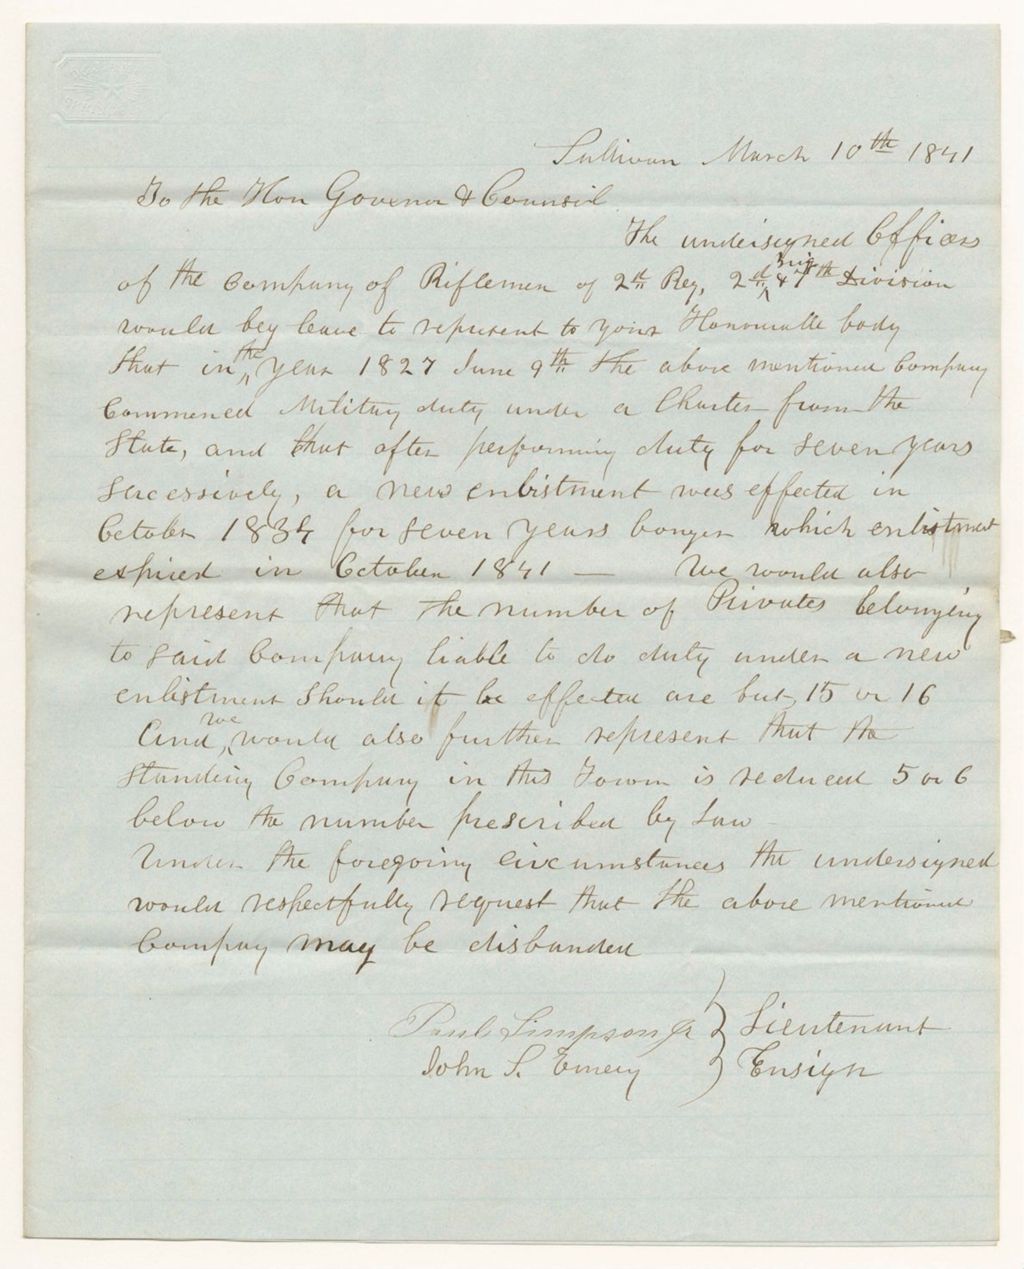 Sullivan March 10th 1841
To the Hon Govenor & Counsil
The undersigned Officers
of the Company of Riflemen of 2d Reg, 2d Brig & 7th Division
would beg leave to represent to your Honourable body
that in the year 1827 June 9th the above mentioned Company
Commenced Military duty under a Charter from the
State, and that after performing duty for seven years
sucessively, a new enlistment was effected in
October 1834 for seven years longer which enlistment
expired in October 1841 — We would also
represent that the number of Privates belonging
to said Company liable to do duty under a new
enlistment should it be effected are but 15 or 16
And, we would also further represent that the
Standing Company in this Town is reduced 5 or 6
below the number prescribed by Law
Under the foregoing circumstances the undersigned
would respectfully request that the above mentioned
Company may be disbanded
Paul Simpson Jr } Lieutenant
John S. Emery } Ensign